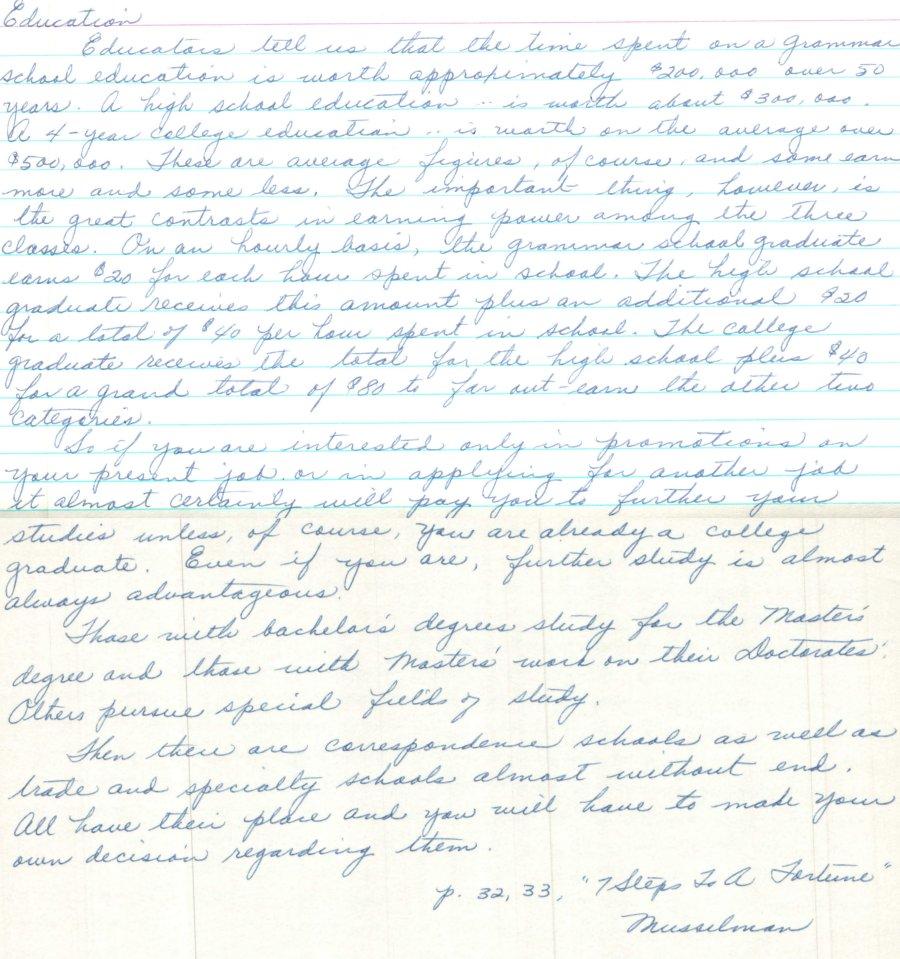 Education
Educators tell us that the time spent on a grammar
school education is worth approximately $200,000 over 50
years. A high school education .. is worth about $300,000.
A 4-year college education .. is worth on the average over
$500,000. These are average figures, of course, and some earn
more and some less. The important thing, however, is
the great contrasts in earning power among the three
classes. On an hourly basis, the grammar school graduate
earns $20 for each hour spent in school. The high school
graduate receives this amount plus an additional $20
for a total of $40 per hour spent in school. The college
graduate receives the total for the high school plus $40
for a grand total of $80 to far out-earn the other two
categories.
So if you are interested only in promotions on
your present job or in applying for another job
it almost certainly will pay you to further your
studies unless, of course, you are already a college
graduate. Even if you are, further study is almost
always advantageous.
Those with bachelor's degrees study for the Master's
degree and those with Masters' work on their Doctorates'.
Others pursue special fields of study.
Then there are correspondence schools as well as
trade and specialty schools almost without end.
All have their place and you will have to made your
own decision regarding them.
p. 32, 33, "7 Steps To A Fortune"
Musselman